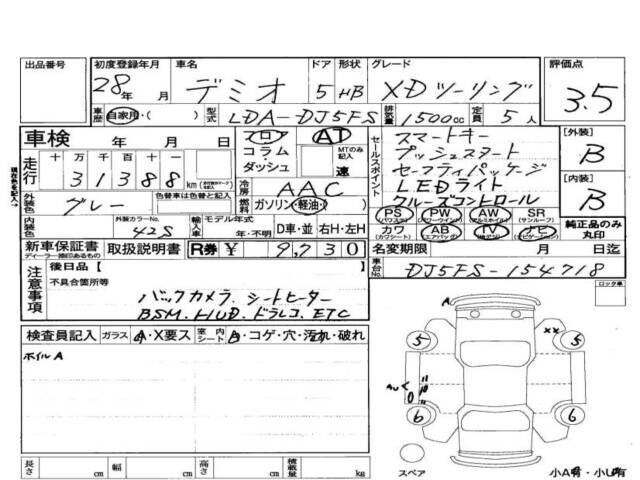 出品番号 初度登録年月 車名 ドア 形状 グレード 評価点
28年 月 デミオ 5 HB XDツーリング 3.5
車歴 自家用・( ) 型式 LDA-DJ5FS 排気量 1500cc 定員 5人
車検 年 月 日 フロア コラム・ダッシュ AT MTのみ記入 速
セールスポイント スマートキー
プッシュスタート
セーフティパッケージ
LEDライト
クルーズコントロール
[外装] B
[内装] B
走行 十 万 千 百 十 一
31388 km
冷房 AAC
外装色 グレー 燃料 ガソリン・軽油・( )
PS PW AW SR
(パワステ) (パワーウインド) (アルミホイル) (サンルーフ)
カワ AB TV ナビ
(カワシート) (エアバッグ) (ナビゲーション)
純正品のみ丸印
内装色 外装カラーNo. 42S 輸入車 モデル年式 年・不明 D車・並 右H・左H
新車保証書 ディーラー捺印あるもの 取扱説明書 R券 ¥ 9,730 名変期限 月 日迄
車台No. DJ5FS-154718
注意事項 後日品〔 〕
不具合箇所等
バックカメラ. シートヒーター
BSM. HUD. ドラレコ. ETC
ロック車
検査員記入 ガラス A・X要ス 室内シート コゲ・穴・汚れ・破れ
ホイルA
A
5 5
xx
6 6
スペア
長さ cm 幅 cm 高さ cm 積載量 kg
小A有・小U有